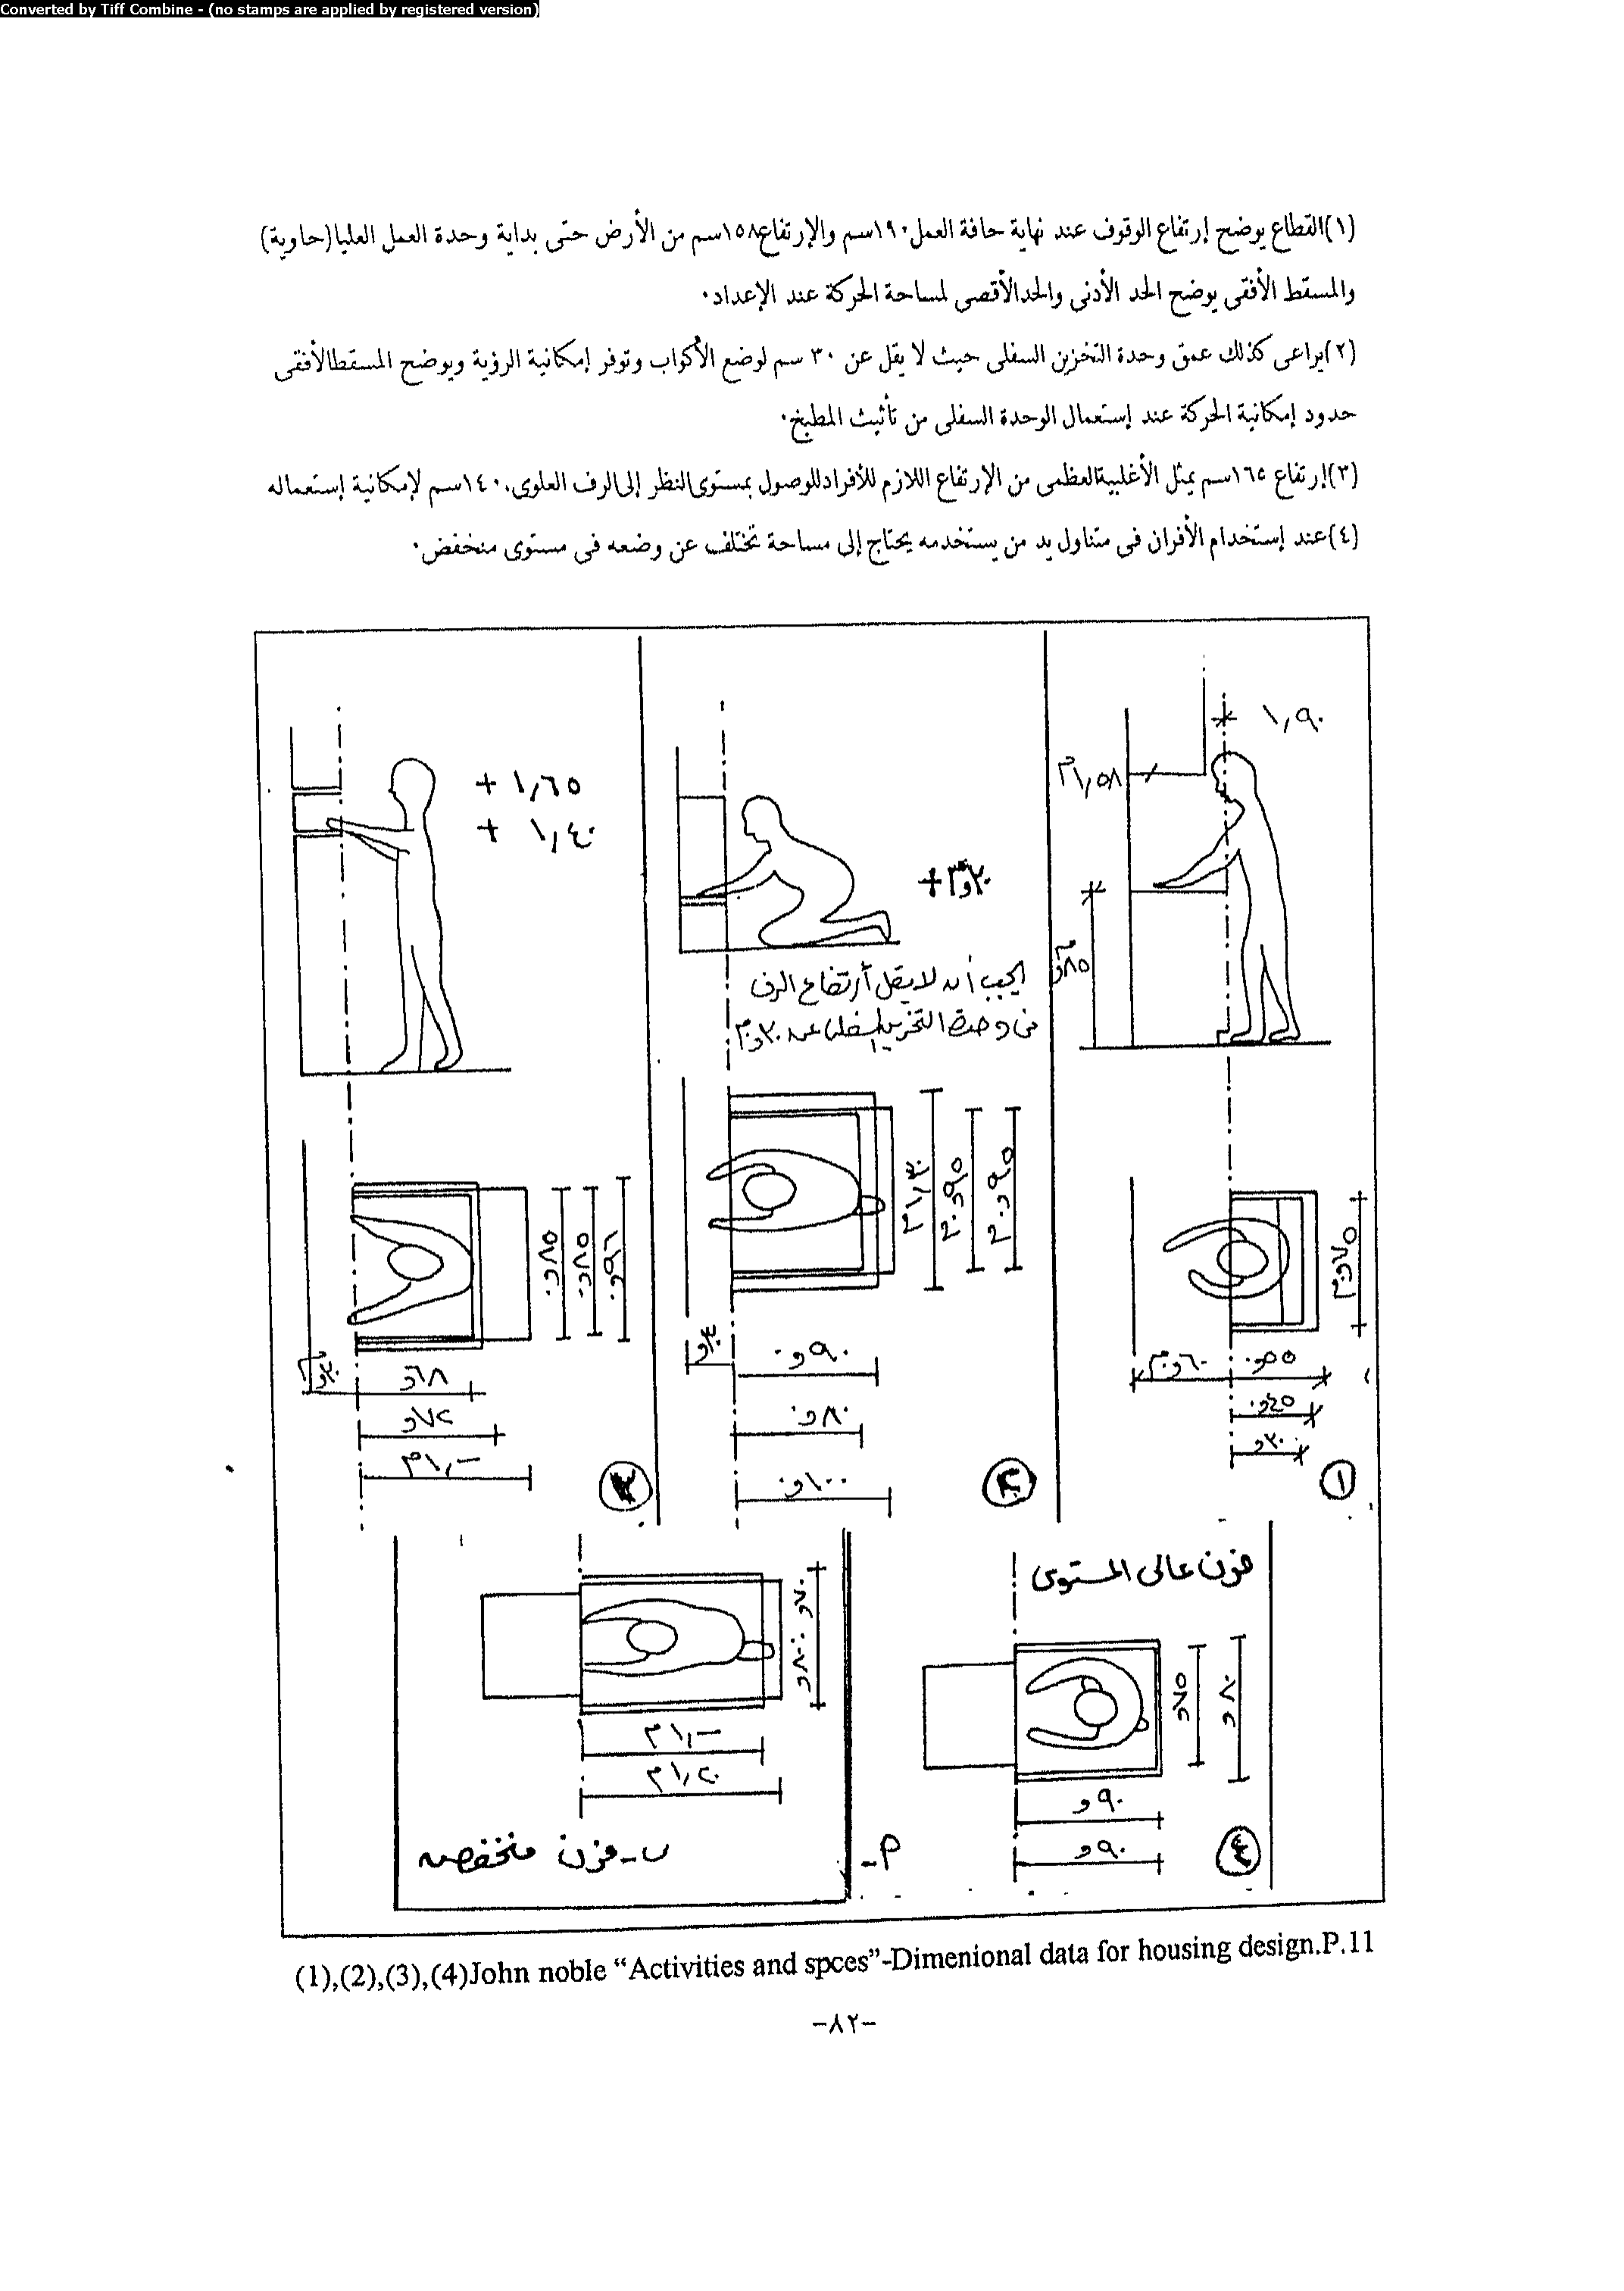 Converted by Tiff Combine - (no stamps are applied by registered version)
(١)القطاع يوضح إرتفاع الوقوف عند نهاية حافة العمل١٩٠سم والإرتفاع١٥٨سم من الأرض حتى بداية وحدة العمل العليا(حاوية)
والمسقط الأفقى يوضح الحد الأدنى والحدالأقصى لمساحة الحركة عند الإعداد٠
(٢)يراعى كذلك عمق وحدة التخزين السفلى حيث لا يقل عن ٣٠ سم لوضع الأكواب وتوفر إمكانية الرؤية ويوضح المسقطالأفقى
حدود إمكانية الحركة عند إستعمال الوحدة السفلى من تأثيث المطبخ٠
(٣)إرتفاع ١٦٥سم يمثل الأغلبيةالعظمى من الإرتفاع اللازم للأفرادللوصول بمستوى النظر إلى الرف العلوى،١٤٠سم لإمكانية إستعماله
(٤)عند إستخدام الأفران فى متناول يد من يستخدمه يحتاج إلى مساحة تختلف عن وضعه فى مستوى منخفض٠
١,٩٠
١,٥٨م
٨٥و
+ ١,٦٥
+ ١,٤٠
+ ٣٠و
يجب أن لا يقل أرتفاع الرف
فى وحدة التخزين السفلى عن ٣٠و٠م
٧٥و٠م
٦٠و٠م
٥٥و٠
٤٥و٠
٣٠و
١
١,٣٠م
٩٥و٠م
٩٥و٠م
٩٠و٠
٨٠و٠
١٠٠و٠
٢
٨٥و٠
٨٥و٠
٩٦و٠
٣٠و م
٦٨و
٧٢و
١,-م
٣
فرن عالى المستوى
٧٥و
٨٠و
٩٠و
٩٠و
٤
أ-
٧٠و
٨٠و
١,-م
١,٢٠م
ب-فرن منخفض
(1),(2),(3),(4)John noble “Activities and spces”-Dimenional data for housing design.P.11
-٨٢-